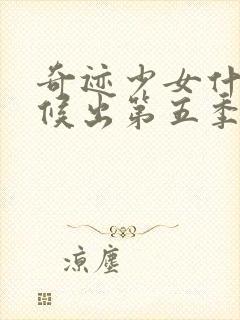 奇迹少女什
候出第五季
凉尘